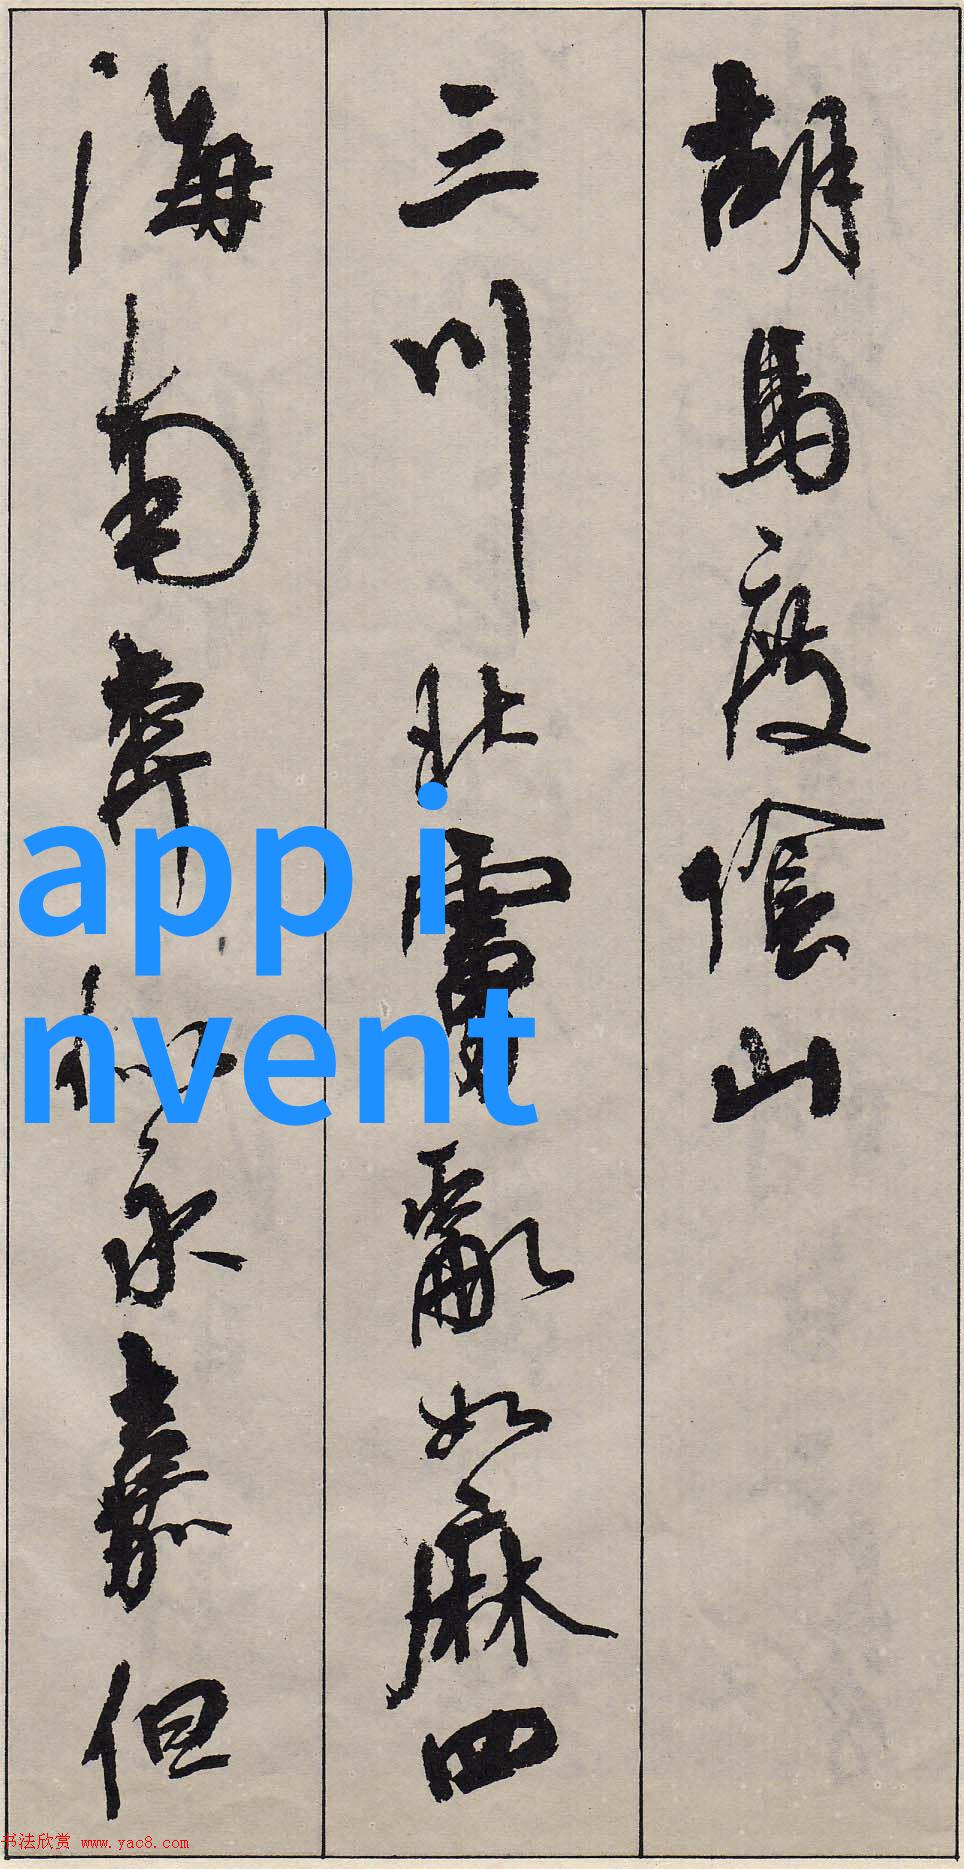 胡馬度陰山
三川北虜亂如麻四
海南奔似永嘉但
app i
nvent
书法欣赏 www.yac8.com